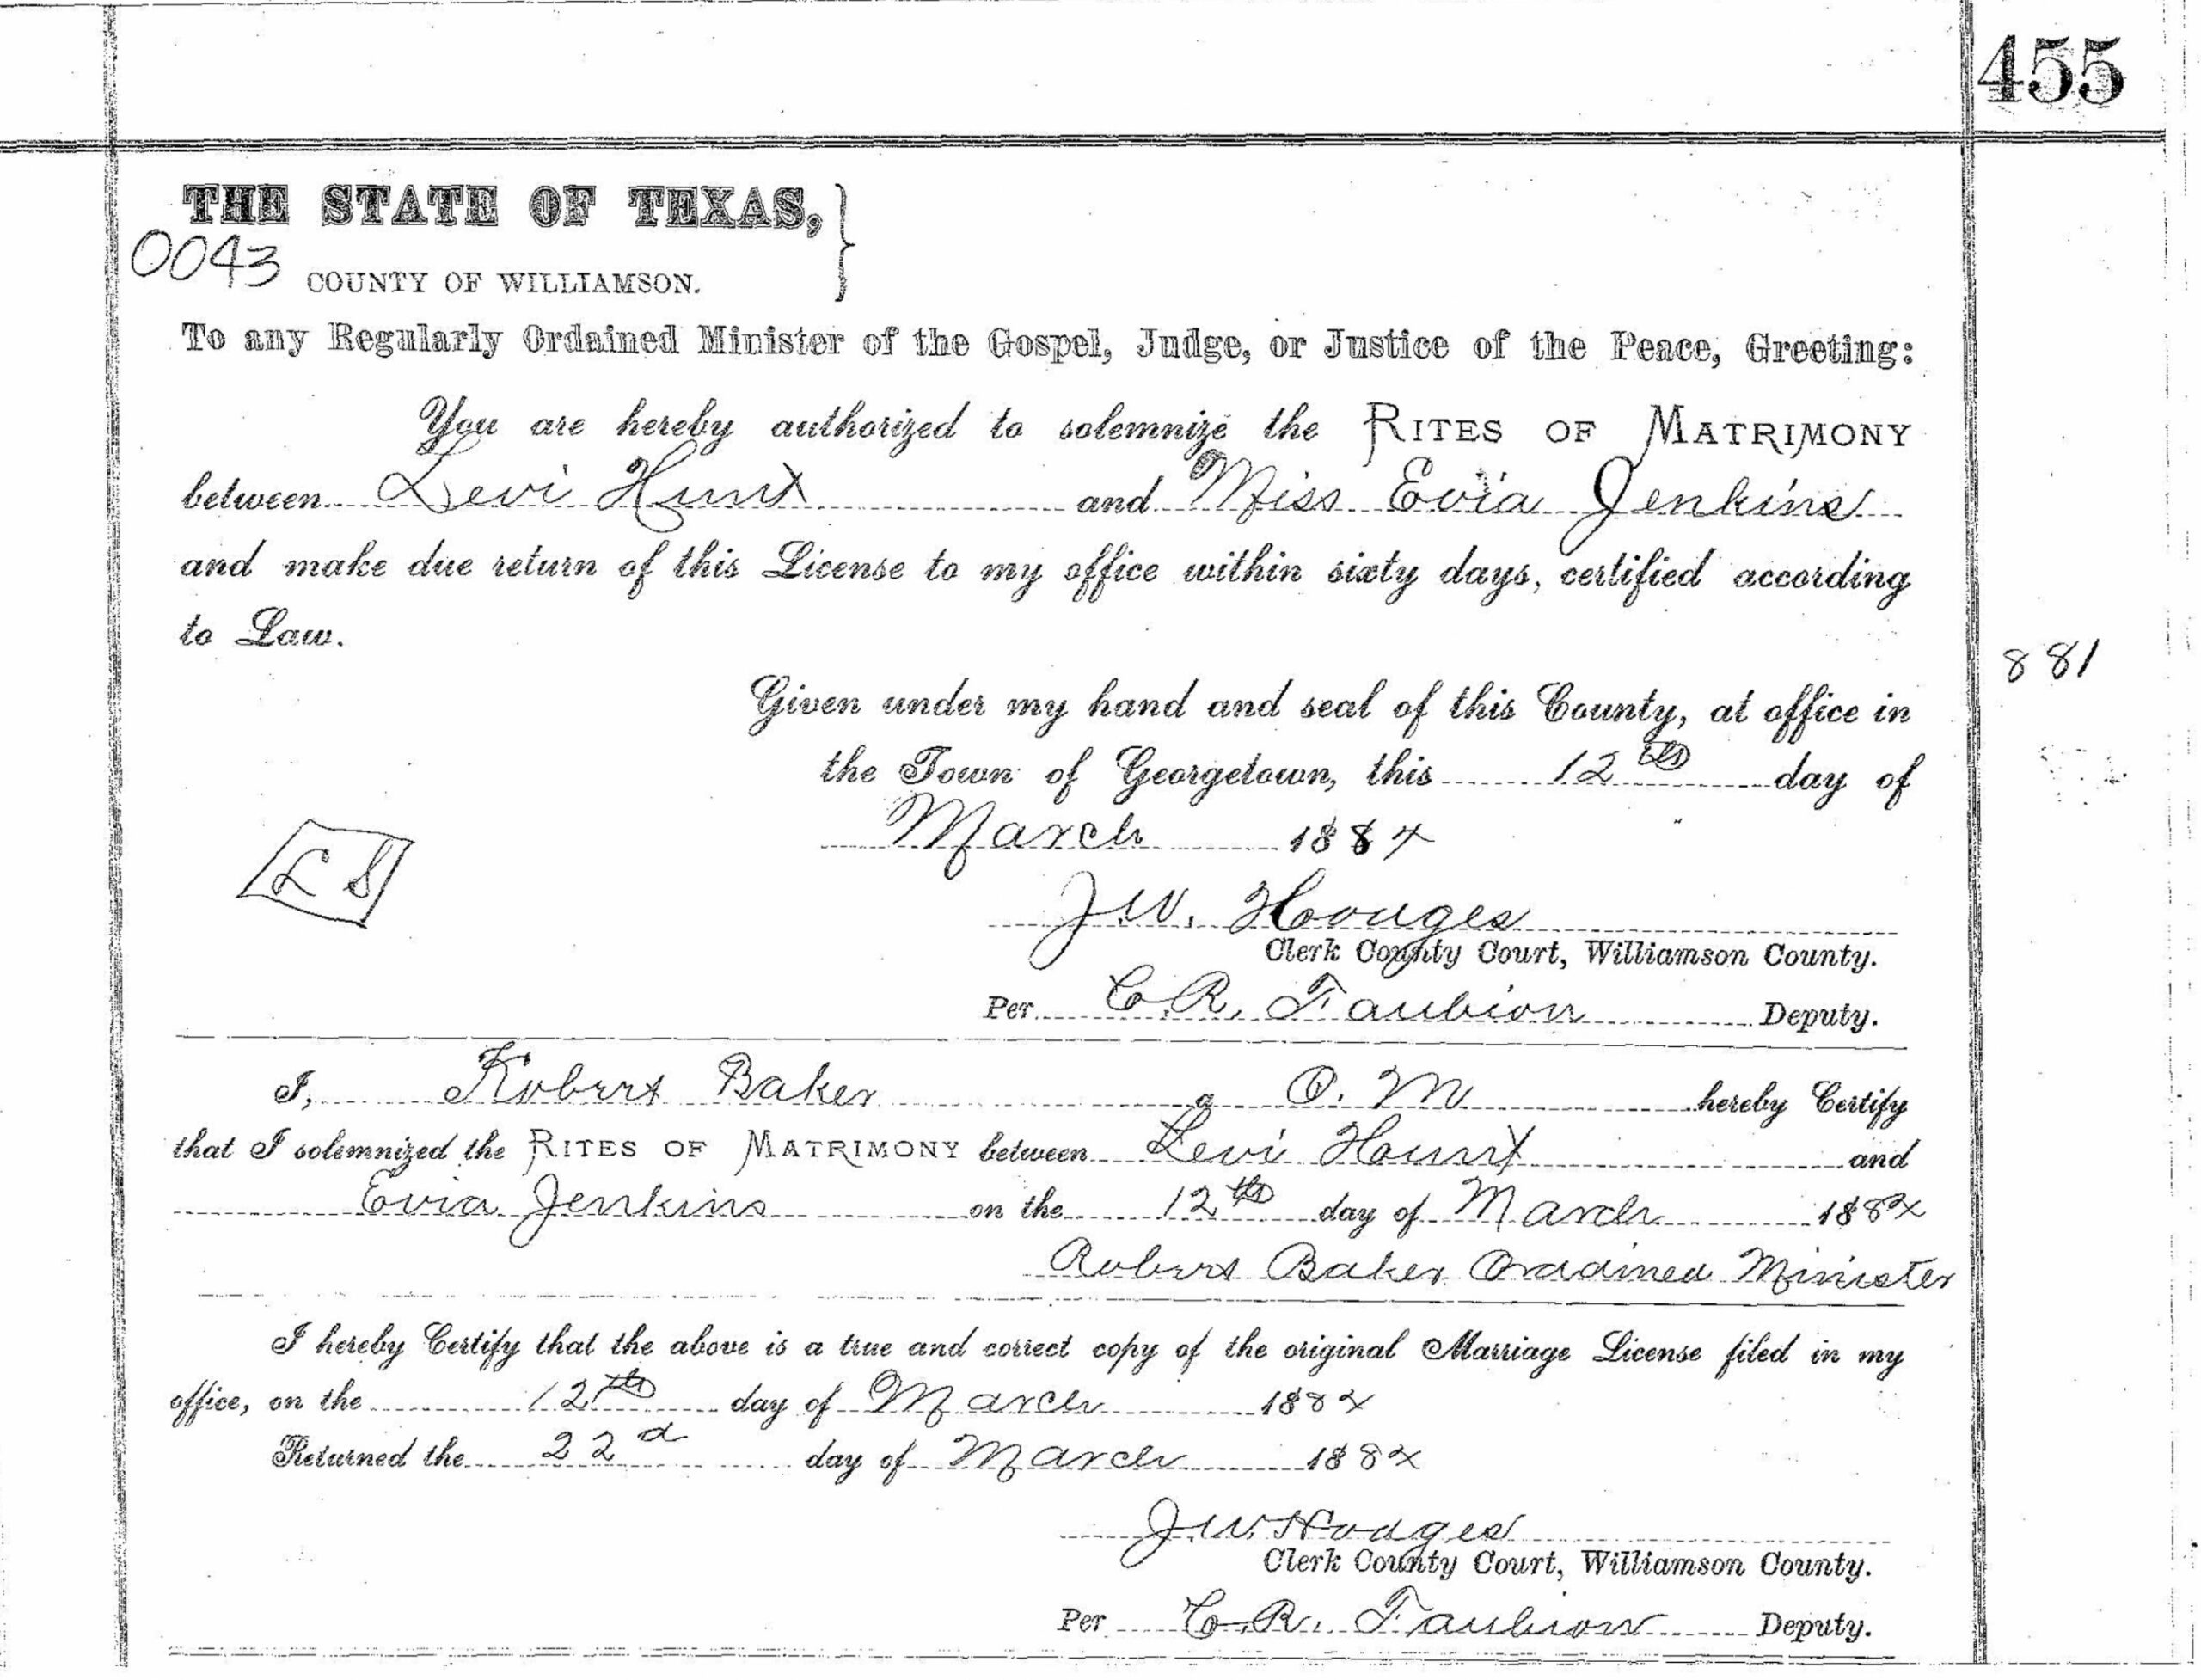 455
THE STATE OF TEXAS,
0043 COUNTY OF WILLIAMSON.
To any Regularly Ordained Minister of the Gospel, Judge, or Justice of the Peace, Greeting:
You are hereby authorized to solemnize the RITES OF MATRIMONY
between Levi Hunt and Miss Evia Jenkins
and make due return of this License to my office within sixty days, certified according
to Law.
881
Given under my hand and seal of this County, at office in
the Town of Georgetown, this 12th day of
March 1884
L S
J.W. Hodges
Clerk County Court, Williamson County.
Per C.R. Faubion Deputy.
I, Robert Baker a O. M hereby Certify
that I solemnized the RITES OF MATRIMONY between Levi Hunt and
Evia Jenkins on the 12th day of March 1884
Robert Baker Ordained Minister
I hereby Certify that the above is a true and correct copy of the original Marriage License filed in my
office, on the 12th day of March 1884
Returned the 22d day of March 1884
J.W. Hodges
Clerk County Court, Williamson County.
Per C.R. Faubion Deputy.